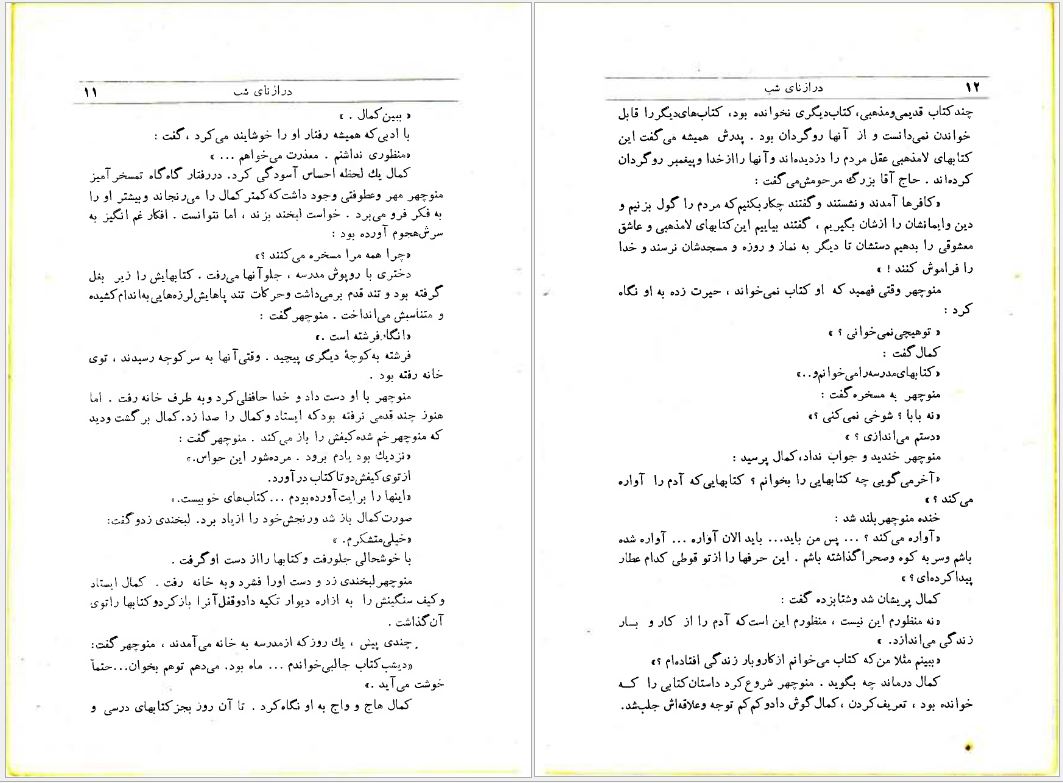 ۱۱
درازنای شب
« ببین کمال . »
با ادبی که همیشه رفتار او را خوشایند می‌کرد ، گفت :
«منظوری نداشتم . معذرت می‌خواهم ... »
کمال یك لحظه احساس آسودگی کرد. در رفتار گاه‌گاه تمسخر آمیز
منوچهر مهر وعطوفتی وجود داشت که کمتر کمال را می‌رنجاند وبیشتر او را
به فکر فرو می‌برد . خواست لبخند بزند ، اما نتوانست . افکار غم انگیز به
سرش هجوم آورده بود :
«چرا همه مرا مسخره می‌کنند ؟»
دختری با روپوش مدرسه ، جلو آنها می‌رفت . کتابهایش را زیر بغل
گرفته بود و تند قدم برمی‌داشت وحرکات تند پاهایش لرزه‌هایی به اندام کشیده
و متناسبش می‌انداخت . منوچهر گفت :
«انگار فرشته است .»
فرشته به کوچهٔ دیگری پیچید . وقتی آنها به سر کوچه رسیدند ، توی
خانه رفته بود .
منوچهر با او دست داد و خدا حافظی کرد وبه طرف خانه رفت . اما
هنوز چند قدمی نرفته بود که ایستاد وکمال را صدا زد. کمال برگشت ودید
که منوچهر خم شده کیفش را باز می‌کند . منوچهر گفت :
«نزدیك بود یادم برود . مرده‌شور این حواس.»
از توی کیفش دو تا کتاب در آورد.
«اینها را برایت آورده بودم ... کتاب‌های خوبیست.»
صورت کمال باز شد ورنجش خود را از یاد برد. لبخندی زد و گفت:
«خیلی متشکرم. »
با خوشحالی جلو رفت وکتابها را از دست او گرفت .
منوچهر لبخندی زد و دست او را فشرد وبه خانه رفت . کمال ایستاد
وکیف سنگینش را به ازاره دیوار تکیه داد وقفل آنرا باز کرد و کتابها را توی
آن گذاشت .
چندی پیش ، یك روز که از مدرسه به خانه می‌آمدند ، منوچهر گفت:
«دیشب کتاب جالبی خواندم ... ماه بود. می‌دهم توهم بخوان... حتماً
خوشت می‌آید .»
کمال هاج و واج به او نگاه کرد . تا آن روز بجز کتابهای درسی و
۱۲
درازنای شب
چند کتاب قدیمی ومذهبی، کتاب دیگری نخوانده بود، کتاب‌های دیگر را قابل
خواندن نمی‌دانست و از آنها روگردان بود . پدرش همیشه می‌گفت این
کتابهای لامذهبی عقل مردم را دزدیده‌اند و آنها را از خدا و پیغمبر روگردان
کرده‌اند . حاج آقا بزرگ مرحومش می‌گفت :
«کافرها آمدند ونشستند و گفتند چکار بکنیم که مردم را گول بزنیم و
دین وایمانشان را ازشان بگیریم ، گفتند بیاییم این کتابهای لامذهبی و عاشق
معشوقی را بدهیم دستشان تا دیگر به نماز و روزه و مسجدشان نرسند و خدا
را فراموش کنند ! »
منوچهر وقتی فهمید که او کتاب نمی‌خواند ، حیرت زده به او نگاه
کرد :
« توهیچی نمی‌خوانی ؟ »
کمال گفت :
«کتابهای مدرسه را می‌خوانم و..»
منوچهر به مسخره گفت :
«نه بابا ؟ شوخی نمی‌کنی ؟»
«دستم می‌اندازی ؟ »
منوچهر خندید و جواب نداد، کمال پرسید :
«آخر می‌گویی چه کتابهایی را بخوانم ؟ کتابهایی که آدم را آواره
می‌کند ؟ »
خنده منوچهر بلند شد :
«آواره می‌کند ؟ ... پس من باید... باید الان آواره ... آواره شده
باشم وسر به کوه وصحرا گذاشته باشم . این حرفها را از تو قوطی کدام عطار
پیدا کرده‌ای ؟ »
کمال پریشان شد وشتابزده گفت :
«نه منظورم این نیست ، منظورم این است که آدم را از کار و بـار
زندگی می‌اندازد. »
«ببینم مثلا من که کتاب می‌خوانم از کار وبار زندگی افتاده‌ام ؟»
کمال درماند چه بگوید . منوچهر شروع کرد داستان کتابی را کـه
خوانده بود ، تعریف کردن ، کمال گوش داد و کم کم توجه وعلاقه‌اش جلب شد.